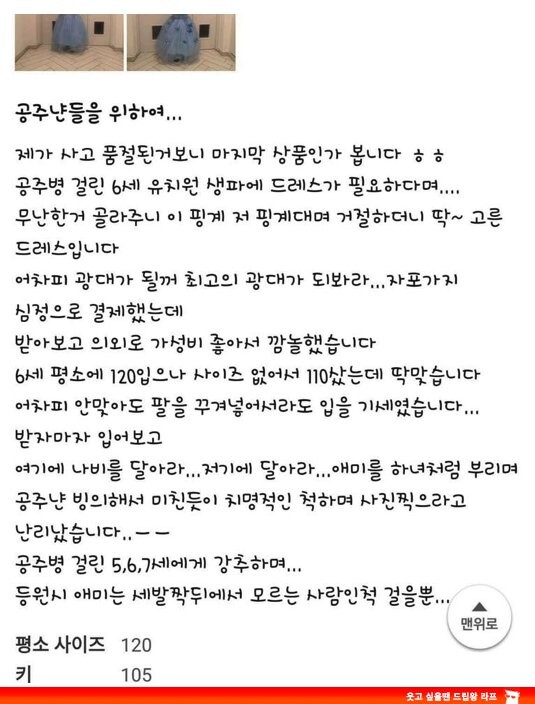 공주냔들을 위하여...
제가 사고 품절된거보니 마지막 상품인가 봅니다 ㅎㅎ
공주병 걸린 6세 유치원 생파에 드레스가 필요하다며....
무난한거 골라주니 이 핑계 저 핑계대며 거절하더니 딱~ 고른
드레스입니다
어차피 광대가 될꺼 최고의 광대가 되봐라...자포가지
심정으로 결제했는데
받아보고 의외로 가성비 좋아서 깜놀했습니다
6세 평소에 120입으나 사이즈 없어서 110샀는데 딱맞습니다
어차피 안맞아도 팔을 꾸겨넣어서라도 입을 기세였습니다...
받자마자 입어보고
여기에 나비를 달아라...저기에 달아라...애미를 하녀처럼 부리며
공주냔 빙의해서 미친듯이 치명적인 척하며 사진찍으라고
난리났습니다..ㅡㅡ
공주병 걸린 5,6,7세에게 강추하며...
등원시 애미는 세발짝뒤에서 모르는 사람인척 걸을뿐...
▲
맨위로
평소 사이즈 120
키 105
웃고 싶을땐 드립왕 라프